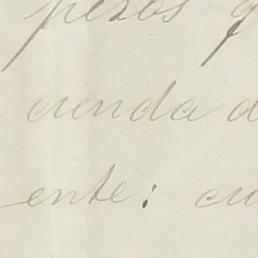 pesos
cienda d
ente: cu